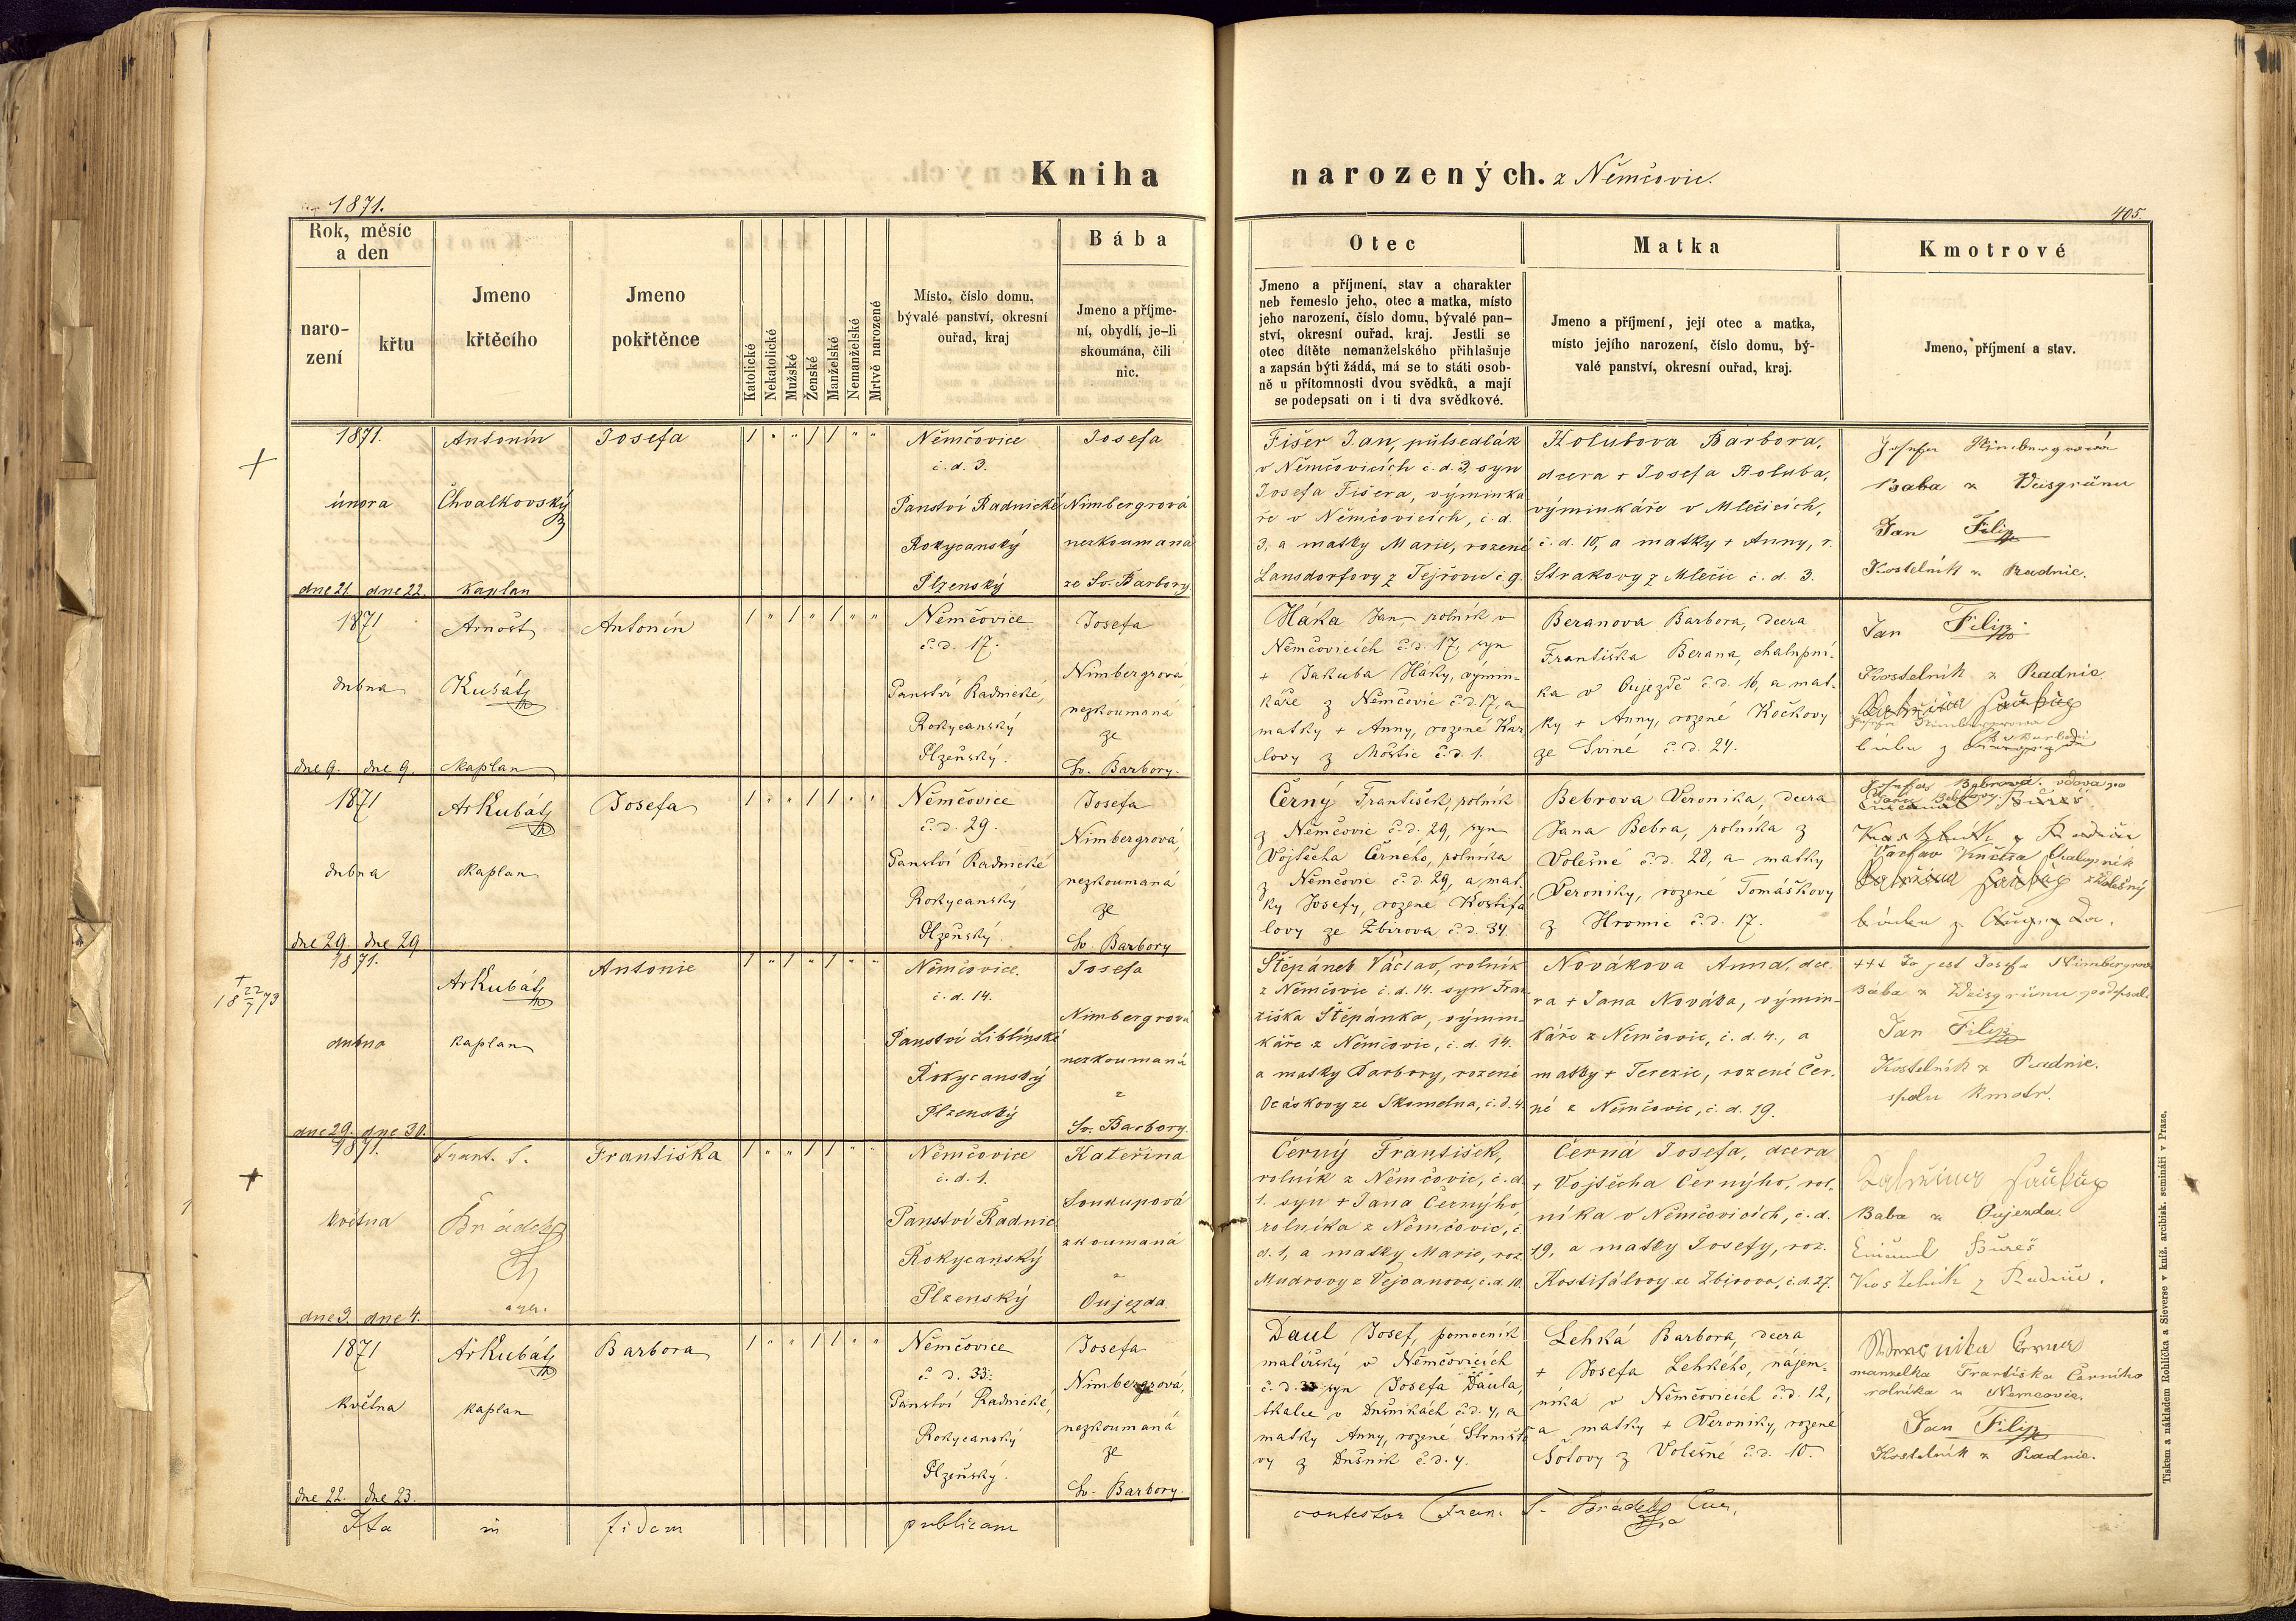 Kniha narozených. z Němčovic.
1871.
405.
Rok, měsíc
a den
naro-
zení
křtu
Jmeno
křtěcího
Jmeno
pokřtěnce
Katolické
Nekatolické
Mužské
Ženské
Manželské
Nemanželské
Mrtvě narozené
Místo, číslo domu,
bývalé panství, okresní
ouřad, kraj
Bába
Jmeno a příjme-
ní, obydlí, je-li
skoumána, čili
nic.
Otec
Jmeno a příjmení, stav a charakter
neb řemeslo jeho, otec a matka, místo
jeho narození, číslo domu, bývalé pan-
ství, okresní ouřad, kraj. Jestli se
otec dítěte nemanželského přihlašuje
a zapsán býti žádá, má se to státi osob-
ně u přítomnosti dvou svědků, a mají
se podepsati on i ti dva svědkové.
Matka
Jmeno a příjmení, její otec a matka,
místo jejího narození, číslo domu, bý-
valé panství, okresní ouřad, kraj.
Kmotrové
Jmeno, příjmení a stav.
1871.
února
dne 21. dne 22.
Antonín
Chvalkovský
kaplan
Josefa
Němčovice
č. d. 3.
Panství Radnické
Rokycanský
Plzenský
Josefa
Nimbergrová
nezkoumaná
ze Sv. Barbory
Fišer Jan, půlsedlák
v Němčovicích č. d. 3, syn
Josefa Fišera, výminka
ře v Němčovicích, č. d.
3, a matky Marie, rozené
Lansdorfovy z Tejřovic č. 9.
Holubova Barbora,
dcera + Josefa Holuba,
výminkáře v Mlečicích,
č. d. 10, a matky + Anny, r.
Strakovy z Mlečic č. d. 3.
Josefa Nimbergrová
Baba z Weisgrünu
Jan Filip
Kostelník z Radnic.
1871
dubna
dne 9. dne 9.
Arnošt
Kubát
kaplan
Antonín
Němčovice
č. d. 17.
Panství Radnické,
Rokycanský
Plzeňský.
Josefa
Nimbergrová,
nezkoumaná
ze
Sv. Barbory.
Háka Jan, rolník v
Němčovicích č. d. 17, syn
+ Jakuba Háky, výmin-
káře z Němčovic č. d. 17, a
matky + Anny, rozené Kar
lovy z Moštic č. d. 1.
Beranova Barbora, dcera
Františka Berana, chalupní-
ka v Oujezdě č. d. 16, a mat-
ky + Anny, rozené Kočkovy
ze Sviné č. d. 24.
Jan Filip
Kostelník z Radnic.
Josefa Nimbergrova
bába z
1871
dubna
dne 29. dne 29
Ar Kubát
kaplan
Josefa
Němčovice
č. d. 29.
Panství Radnické
Rokycanský
Plzeňský.
Josefa
Nimbergrová,
nezkoumaná
ze
Sv. Barbory
Černý František, rolník
z Němčovic č. d. 29, syn
Vojtěcha Černého, rolníka
z Němčovic č. d. 29, a mat-
ky Josefy, rozené Kostifa
lovy ze Zbirova č. d. 34.
Bebrova Veronika, dcera
Jana Bebra, rolníka z
Volešné č. d. 28, a matky
Veroniky, rozené Tomáškovy
z Hromic č. d. 17.
Josefa Bebrová, vdova po
Václav Kučera Chalupník
z Volešný
bába z
+ 22/7 1873
1871.
dubna
dne 29. dne 30.
Ar Kubát
kaplan
Antonie
Němčovice.
č. d. 14.
Panství Liblínské
Rokycanský
Plzenský
Josefa
Nimbergrová
nezkoumaná
z
Sv. Barbory.
Štěpánek Václav, rolník
z Němčovic č. d. 14. syn Fran
tiška Štěpánka, výmin-
káře z Němčovic, č. d. 14.
a matky Barbory, rozené
Ocáskovy ze Skomelna, č. d. 4.
Novákova Anna, dce-
ra + Jana Nováka, výmin-
káře z Němčovic, č. d. 4., a
matky + Terezie, rozené Čer-
né z Němčovic, č. d. 19.
+++ To jest Josefa Nimbergrová
Bába z Weisgrünu podepsal:
Jan Filip
Kostelník z Radnic.
spolu kmotr.
1871.
května
dne 3. dne 4.
Frant. S.
Brádek
Františka
Němčovice
č. d. 1.
Panství Radnic
Rokycanský
Plzenský
Kateřina
Soukupová
zkoumaná
z
Oujezda.
Černý František,
rolník z Němčovic, č. d.
1. syn + Jana Černýho,
rolníka z Němčovic, č.
d. 1, a matky Marie, roz.
Mudrovy z Vejvanova, č. d. 10.
Černá Josefa, dcera
+ Vojtěcha Černýho, rol-
níka v Němčovicích, č. d.
19, a matky Josefy, roz.
Kostifálovy ze Zbirova, č. d. 27.
Baba z Oujezda.
Bureš
Kostelník z Radnic.
1871
května
dne 22. dne 23.
Ar Kubát
kaplan
Barbora
Němčovice
č. d. 33.
Panství Radnické,
Rokycanský
Plzeňský.
Josefa
Nimbergrová,
nezkoumaná
ze
Sv. Barbory.
Daul Josef, pomocník
malířský v Němčovicích
č. d. 33 syn Josefa Daula,
tkalce v Dušníkách č. d. 4, a
matky Anny, rozené Strniště
vy z Dušník č. d. 4.
Lehká Barbora, dcera
+ Josefa Lehkého, nájem-
níka v Němčovicích č. d. 12,
a matky + Veroniky, rozené
Šotovy z Volešné č. d. 10.
manzelka Františka Černího
rolníka z Nemcovic.
Jan Filip
Kostelník z Radnic.
Ita in fidem publicam contestor Fran. S. Brádek
Tiskem a nákladem Rohlíčka a Sieverse v kníž. arcibisk. semináři v Praze.